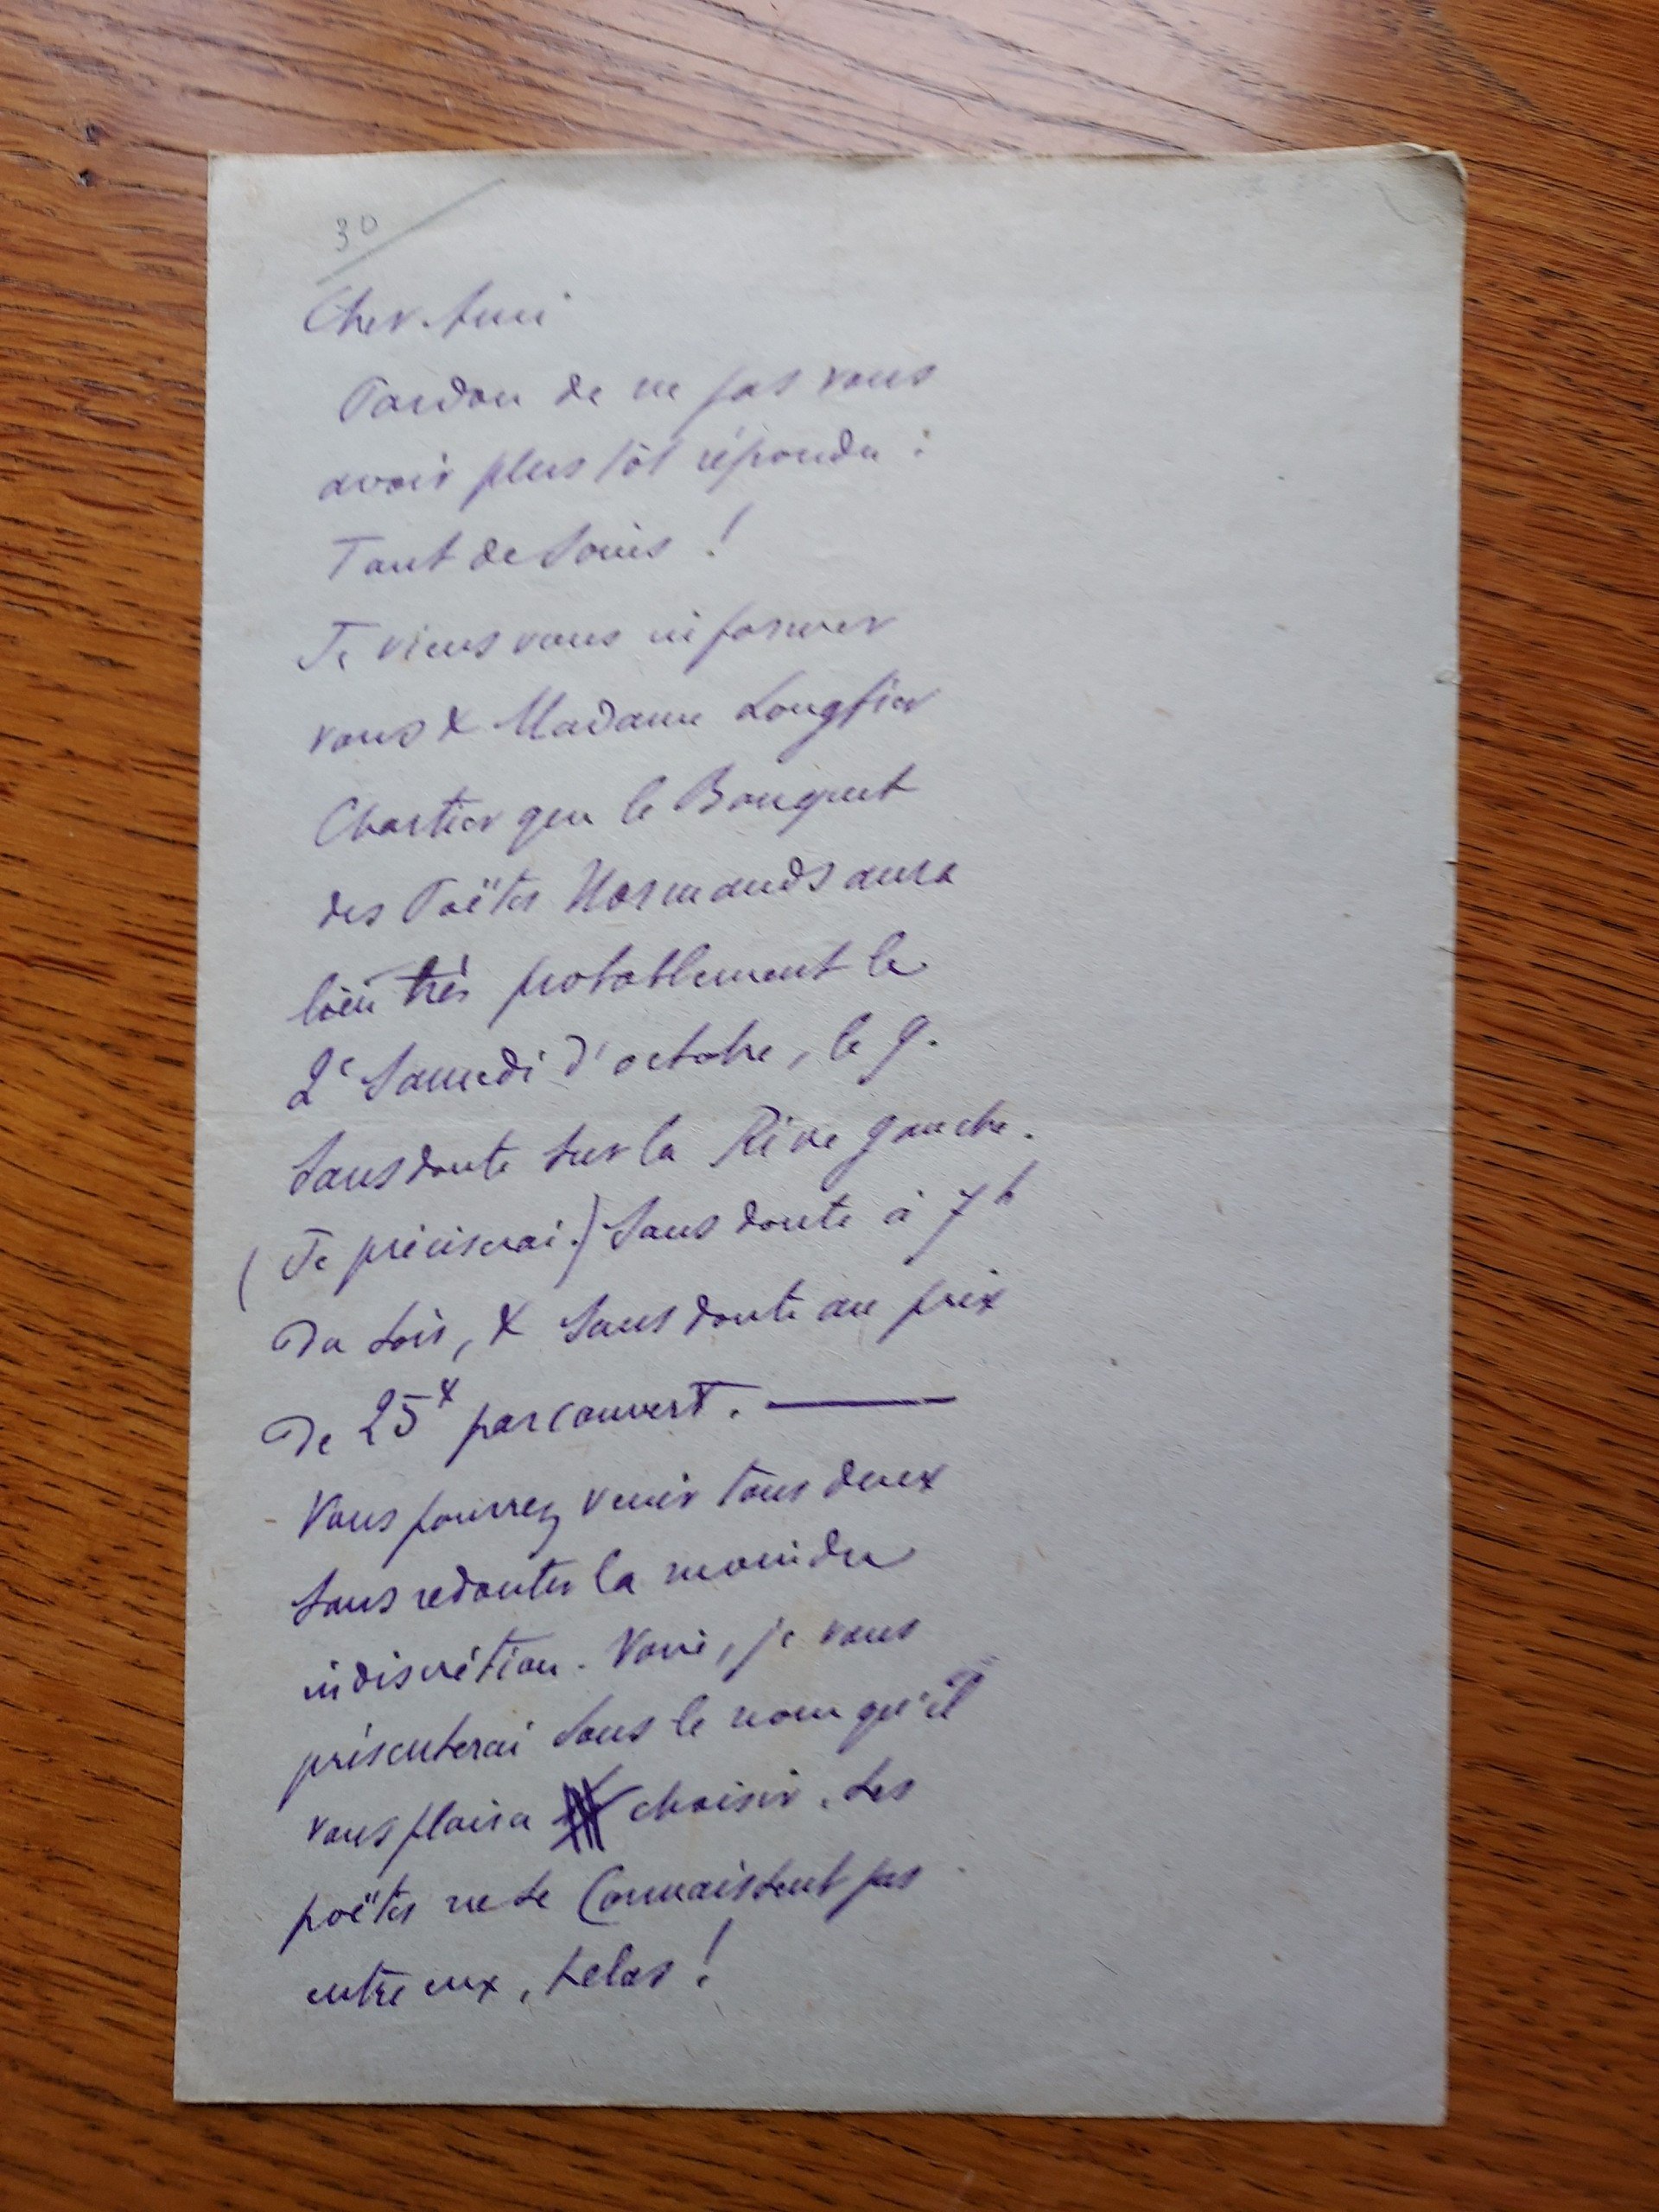 30
Cher Ami
Pardon de ne pas vous
avoir plus tôt répondu :
Tant de soins !
Je viens vous informer
vous & Madame Longfier
Chartier que le Banquet
des Poëtes Normands aura
lieu très probablement le
2e Samedi d'octobre, le 9.
Sans doute sur la Rive gauche.
(Je préciserai.) Sans doute à 7h
du soir, & sans doute au prix
de 25f par couvert. —
Vous pourrez venir tous deux
sans redouter la moindre
indiscrétion. Voire, je vous
présenterai sous le nom qu'il
vous plaira choisir. Les
poëtes ne se connaissent pas
entre eux, hélas !